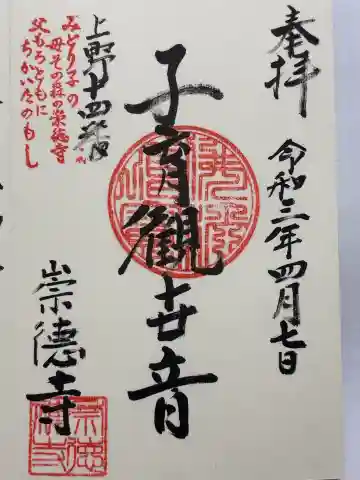 奉拝
令和三年四月七日
子育観世音
上野十四番
みどり子の
母その森の崇徳寺
父もろともに
ちかいたのもし
崇徳寺